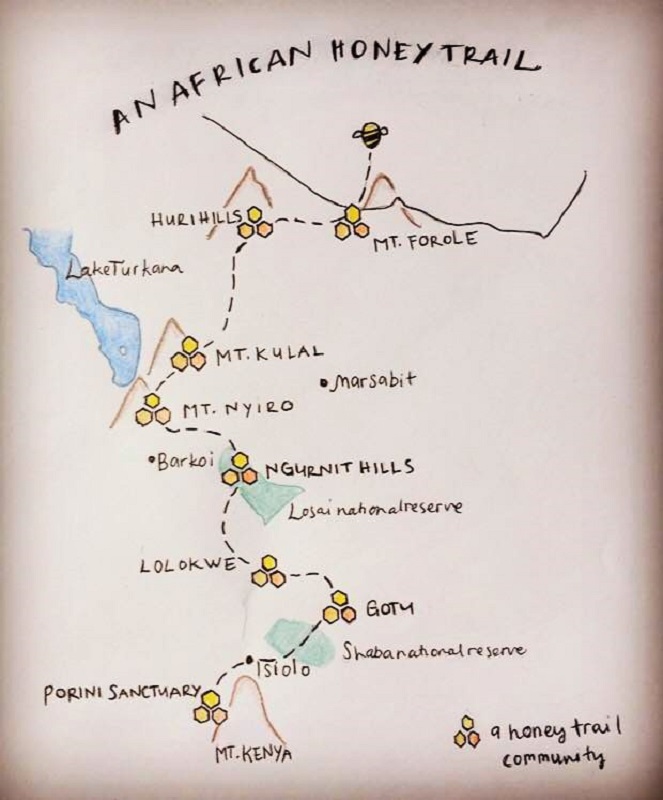 AN AFRICAN HONEY TRAIL
HURI HILLS
MT. FOROLE
Lake Turkana
MT. KULAL
Marsabit
MT. NYIRO
Barkoi
NGURNIT HILLS
Losai national reserve
LOLOKWE
GOTU
Shaba national reserve
Isiolo
PORINI SANCTUARY
MT. KENYA
a honey trail
community